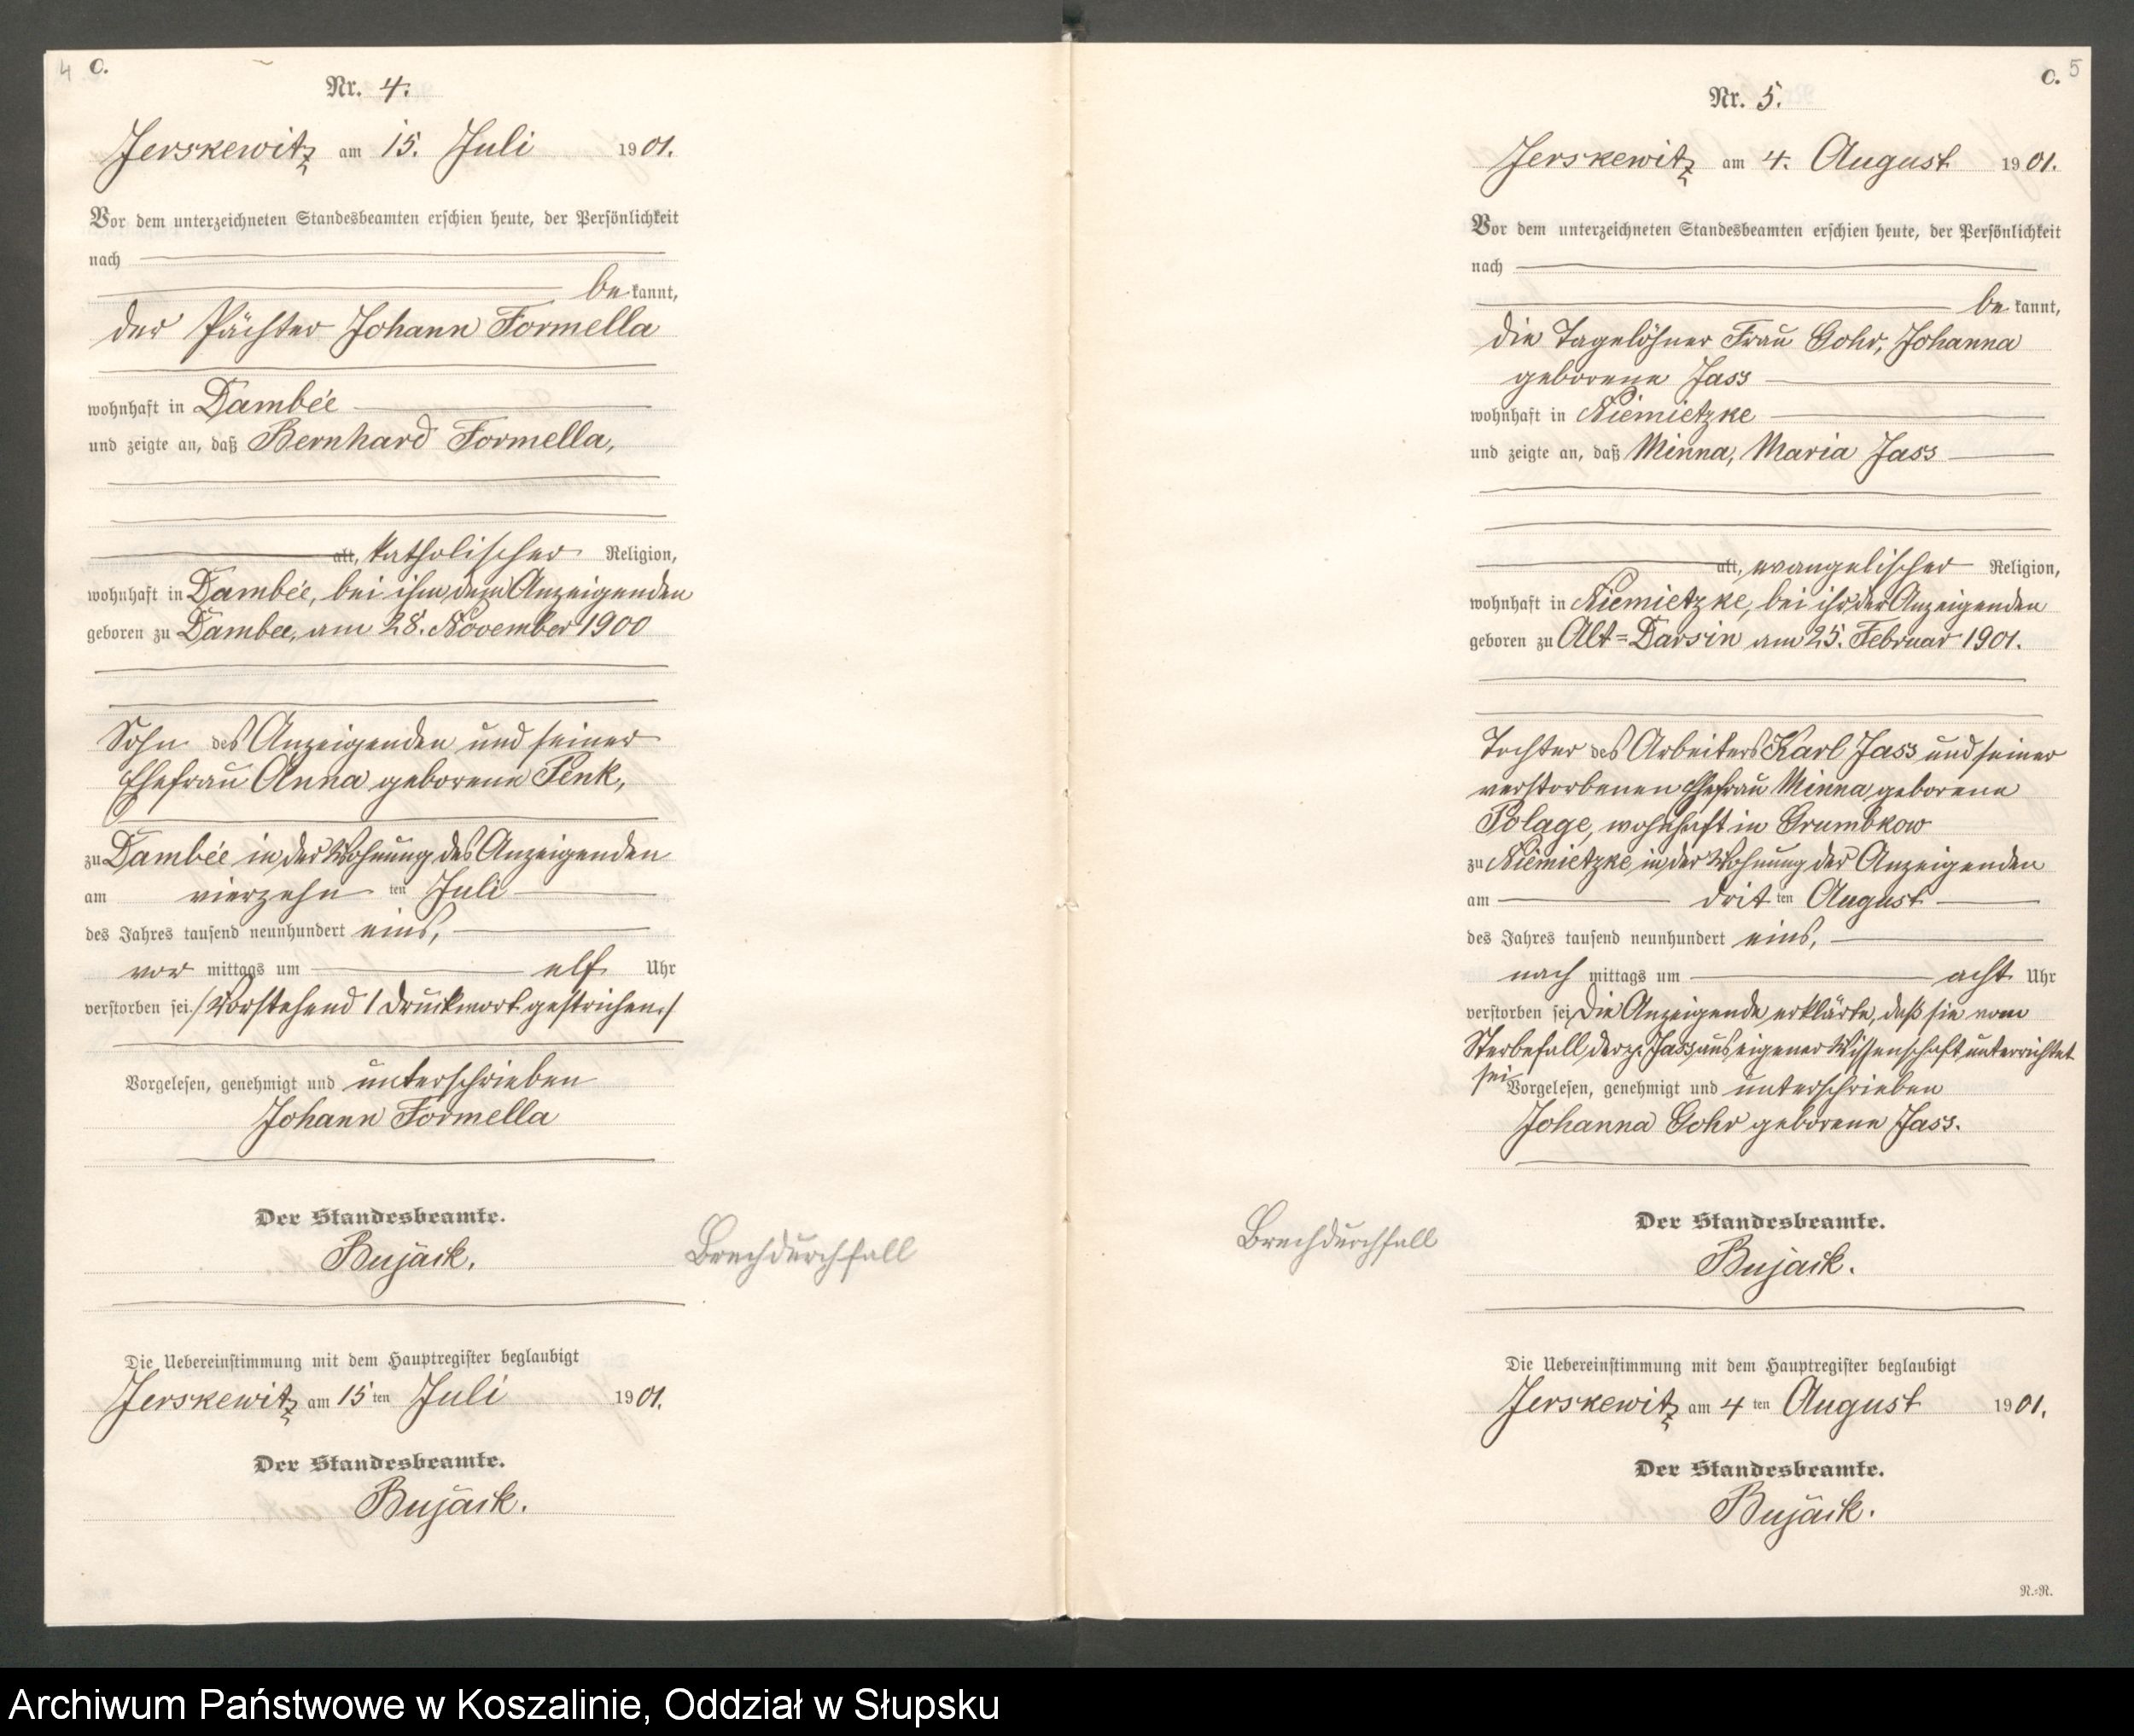 4 C.
Nr. 4.
Jerskewitz am 15. Juli 1901.
Vor dem unterzeichneten Standesbeamten erschien heute, der Persönlichkeit
nach
be kannt,
der Pächter Johann Formella
wohnhaft in Dambée
und zeigte an, daß Bernhard Formella,
alt, katholischer Religion,
wohnhaft in Dambée, bei ihm dem Anzeigenden
geboren zu Dambee, am 28. November 1900
Sohn des Anzeigenden und seiner
Ehefrau Anna geborene Penk,
zu Dambée in der Wohnung des Anzeigenden
am vierzehn ten Juli
des Jahres tausend neunhundert eins,
vor mittags um elf Uhr
verstorben sei. /Vorstehend 1 Druckwort gestrichen./
Vorgelesen, genehmigt und unterschrieben
Johann Formella
Der Standesbeamte.
Bujack.
Brechdurchfall
Die Uebereinstimmung mit dem Hauptregister beglaubigt
Jerskewitz am 15 ten Juli 1901.
Der Standesbeamte.
Bujack.
C. 5
Nr. 5.
Jerskewitz am 4. August 1901.
Vor dem unterzeichneten Standesbeamten erschien heute, der Persönlichkeit
nach
be kannt,
die Tagelöhner Frau Gohr, Johanna
geborene Jass
wohnhaft in Niemietzke
und zeigte an, daß Minna, Maria Jass
alt, evangelischer Religion,
wohnhaft in Niemietzke, bei ihr der Anzeigenden
geboren zu Alt=Darsin am 25. Februar 1901.
Tochter des Arbeiters Karl Jass und seiner
verstorbenen Ehefrau Minna geborene
Polage, wohnhaft in Grumbkow
zu Niemietzke in der Wohnung der Anzeigenden
am drit ten August
des Jahres tausend neunhundert eins,
nach mittags um acht Uhr
verstorben sei, die Anzeigende erklärte, daß sie vom
Sterbefall der p. Jass aus eigener Wissenschaft unterrichtet
sei
Vorgelesen, genehmigt und unterschrieben
Johanna Gohr geborene Jass.
Der Standesbeamte.
Bujack.
Brechdurchfall
Die Uebereinstimmung mit dem Hauptregister beglaubigt
Jerskewitz am 4 ten August 1901.
Der Standesbeamte.
Bujack.
N.=N.
Archiwum Państwowe w Koszalinie, Oddział w Słupsku